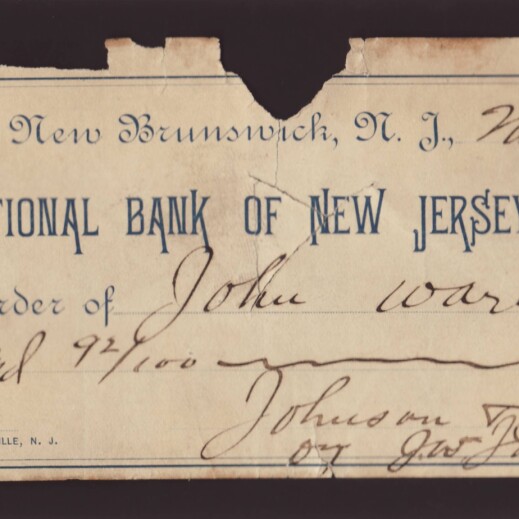 New Brunswick, N. J.,
TIONAL BANK OF NEW JERSEY
rder of John War
d 92/100
Johnson
LLE, N. J.